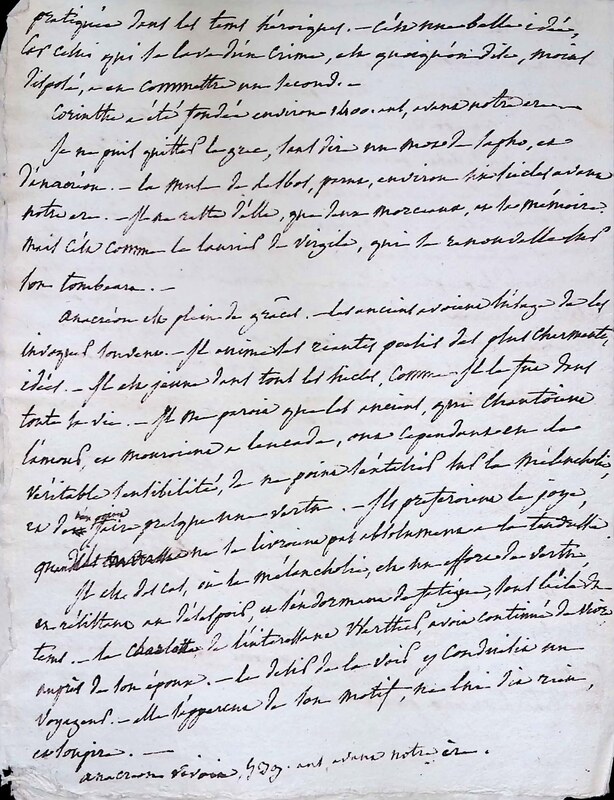 pratiquée dans les tems héroïques. - c'est une belle idée,
car celui qui se lave d'un crime, est quoiqu'on dise, moins
disposé, a en commettre un second. -
Corinthe a été fondée environ 1400. ans, avant notre ere. -
Je ne puis quitter la grece, sans dire un mot de Sapho, et
d'anacréon. - la muse de Lesbos, parut, environ six siecles avant
notre ere. - Il ne reste d'elle, que deux morceaux, et sa mémoire.
mais c'est comme le laurier de virgile, qui se renouvelle sur
son tombeau. -
anacréon est plein de grâces. - les anciens avoient l'usage de les
invoquer souvent. - Il anime ses riantes poesies des plus charmantes
idées. - Il est jeune dans tous les siecles, comme Il le fut dans
toute sa vie. - Il me paroit que les anciens, qui chantoient
l'amour, et mouroient a leucade, ont cependant en la
véritable sensibilité, de ne point s'entablir sur la mélancholie,
et d'en faire presque une vertu. - Ils preferoient la joye,
quand ne se livroient pas absolument a la tendresse.
Il est des cas, où la mélancholie, est un effort de vertu
en résistant au désespoir, et s'endormant de fatigue, sous l'aile du
tems. - la Charlotte de l'interessant Werther, avoit continué de vivre
auprès de son époux. - le desir de la voir y conduisit un
voyageur. - elle s'apperçut de son motif, ne lui dit rien,
et soupira. -
anacréon vivoit, ans, avant notre ère.